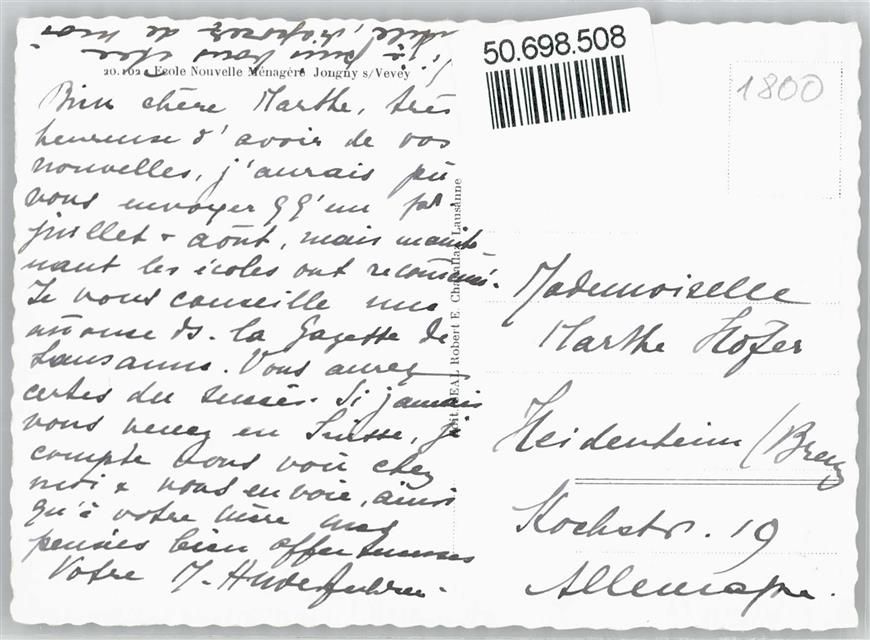 50.698.508
1800
20.102 Ecole Nouvelle Ménagère Jongny s/Vevey
Bien chère Marthe, très
heureuse d'avoir de vos
nouvelles, j'aurais pu
vous envoyer qq'un
juillet + août, mais mainte
nant les écoles ont recommencé.
Je vous conseille une
annonce ds. la Gazette de
Lausanne. Vous aurez
certes du succès. Si jamais
vous venez en Suisse, je
compte vous voir chez
moi & vous envoie, ainsi
qu'à votre mère mes
pensées bien affectueuses
Votre M.
Edit. DEAL Robert E. Chapallaz Lausanne
Mademoiselle
Marthe Hofer
Heidenheim / Brenz
Kochstr. 19
Allemagne.